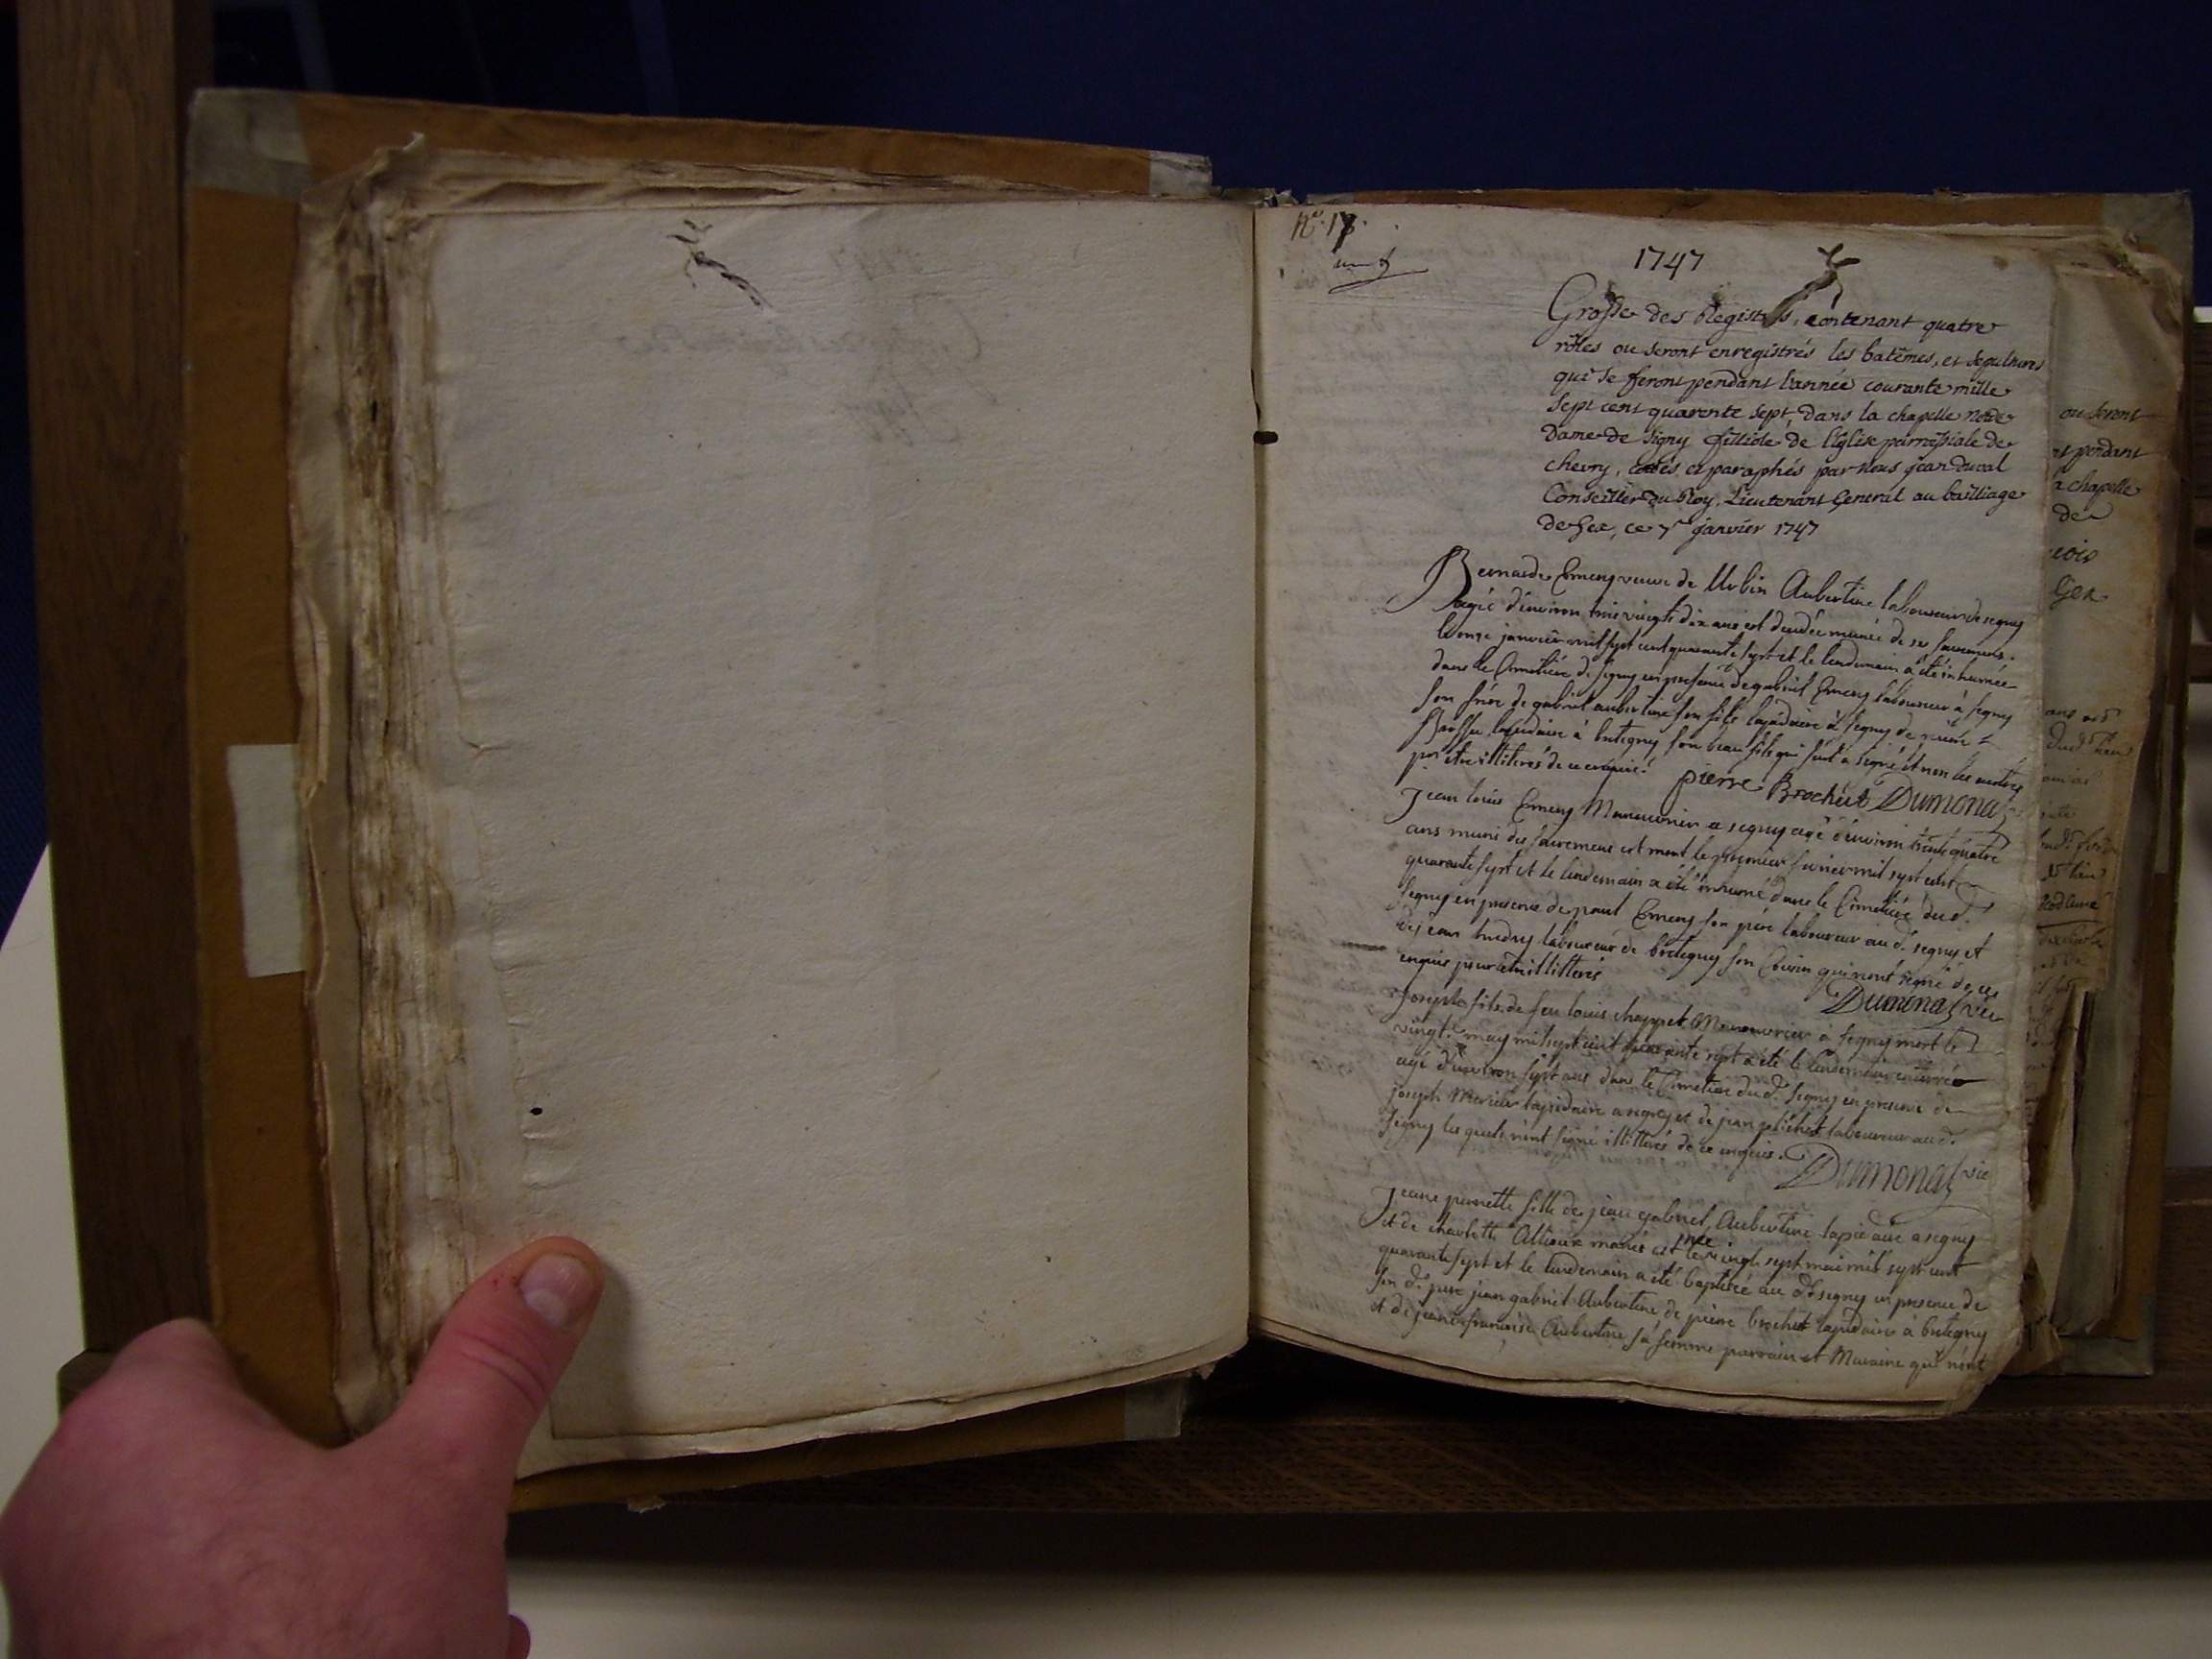 N.° 17.
1747
Grosse des Registres, contenant quatre
rôles ou seront enregistrés les batêmes, et sepultures
qui se feront pendant l'année courante mille
sept cent quarente sept, dans la chapelle Notre
Dame de Signy filliole de l'Eglise parroissiale de
chevry, cottés et paraphés par nous jean duval
Conseiller du Roy, Lieutenant General au bailliage
de Gex, ce 7r janvier 1747
Bernarde Emery veuve de Urbin Aubertine laboureur de segny
agée d'environ trois vingts dix ans est decedée munie de ses sacremens.
le onze janvier mil sept cent quarante sept et le lendemain a été inhumée
dans le Cimetière de segny en presence de gabriel Emery laboureur à segny
son frère de gabriel aubertine son fils lapidaire à segny de pierre
Brochu lapidaire à bretegny son beau fils qui seul a signé et non les autres
pr etre illiterés de ce enquis.
pierre Brochut Dumonal
Jean louis Emery Manuvrier a segny agé d'environ trente quatre
ans muni des sacremens est mort le premier fevrier mil sept cent
quarante sept et le lendemain a été inhumé dans le Cimetière dud.
Segny en presence de paul Emery son père laboureur aud. segny et
de jean laboureur de bretegny son Cousin qui n'ont signé de ce
enquis pour etre illitterés
Dumonal vic
Joseph fils de feu louis chappet Manouvrier à segny mort le
vingt may mil sept cent quarante sept a été le lendemain enterré
agé d'environ sept ans dans le Cimetiere dud. Segny en presence de
joseph Mercier lapidaire a segny et de jean pelichet laboureur aud.
Segny les quels n'ont signé illitterés de ce enquis.
Dumonal vic
Jeane pernette fille de jean gabriel Aubertine lapidaire a segny
et de charlotte Allioux mariés est née le vingt sept mai mil sept cent
quarante sept et le lendemain a été baptisée au d. segny en presence de
son d. pere jean gabriel Aubertine, de pierre brochut lapidaire à bretegny
et de jeane françoise Aubertine sa femme parrain et Maraine qui n'ont
ou seront
nt pendant
a chapelle
de
Gex